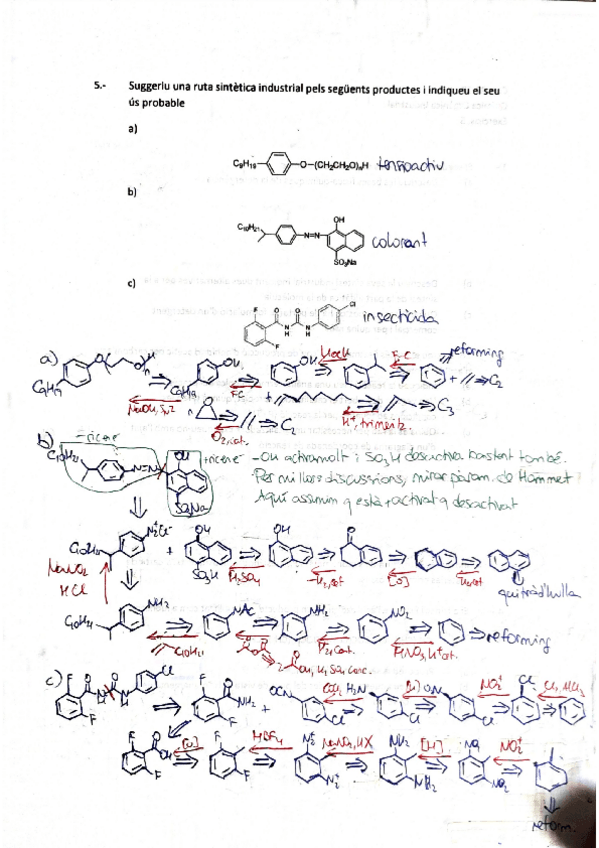 5.- Suggeriu una ruta sintètica industrial pels següents productes i indiqueu el seu
ús probable
a)
C9H19 O-(CH2CH2O)nH tensioactiu
b)
C10H21 N=N OH SO3Na colorant
c)
F O O Cl N H N H F insecticida
a) O O H n C9H19 OH C9H19 OH Hock F-C reforming
+ C2
NaOH, FC O C2 C3
O2, cat. H+, trimeritz.
b) -ric en e- C10H21 N=N OH SO3Na +ric en e- - OH activa molt i SO3H desactiva bastant també.
Per millors discussions, mirar paràm. de Hammet
Aquí assumim q està + activat q desactivat
N2+Cl- C10H21 + OH SO3H OH O
NaNO2 HCl H2SO4 -H2, cat [O] H2, cat quitrà d'hulla
NH2 C10H21 NAc NH2 NO2 reforming
C10H21 OH, H2SO4 conc. H2, cat. HNO3, H+ cat.
c) F O O Cl F F O NH2 F + OCN Cl COCl2 H2N Cl [H] O2N Cl NO2+ Cl Cl2, AlCl3
F O OH F [O] HBF4 F F N2+ N2+ NaNO2, HX NH2 NH2 [H] NO2 NO2 NO2+
reform.